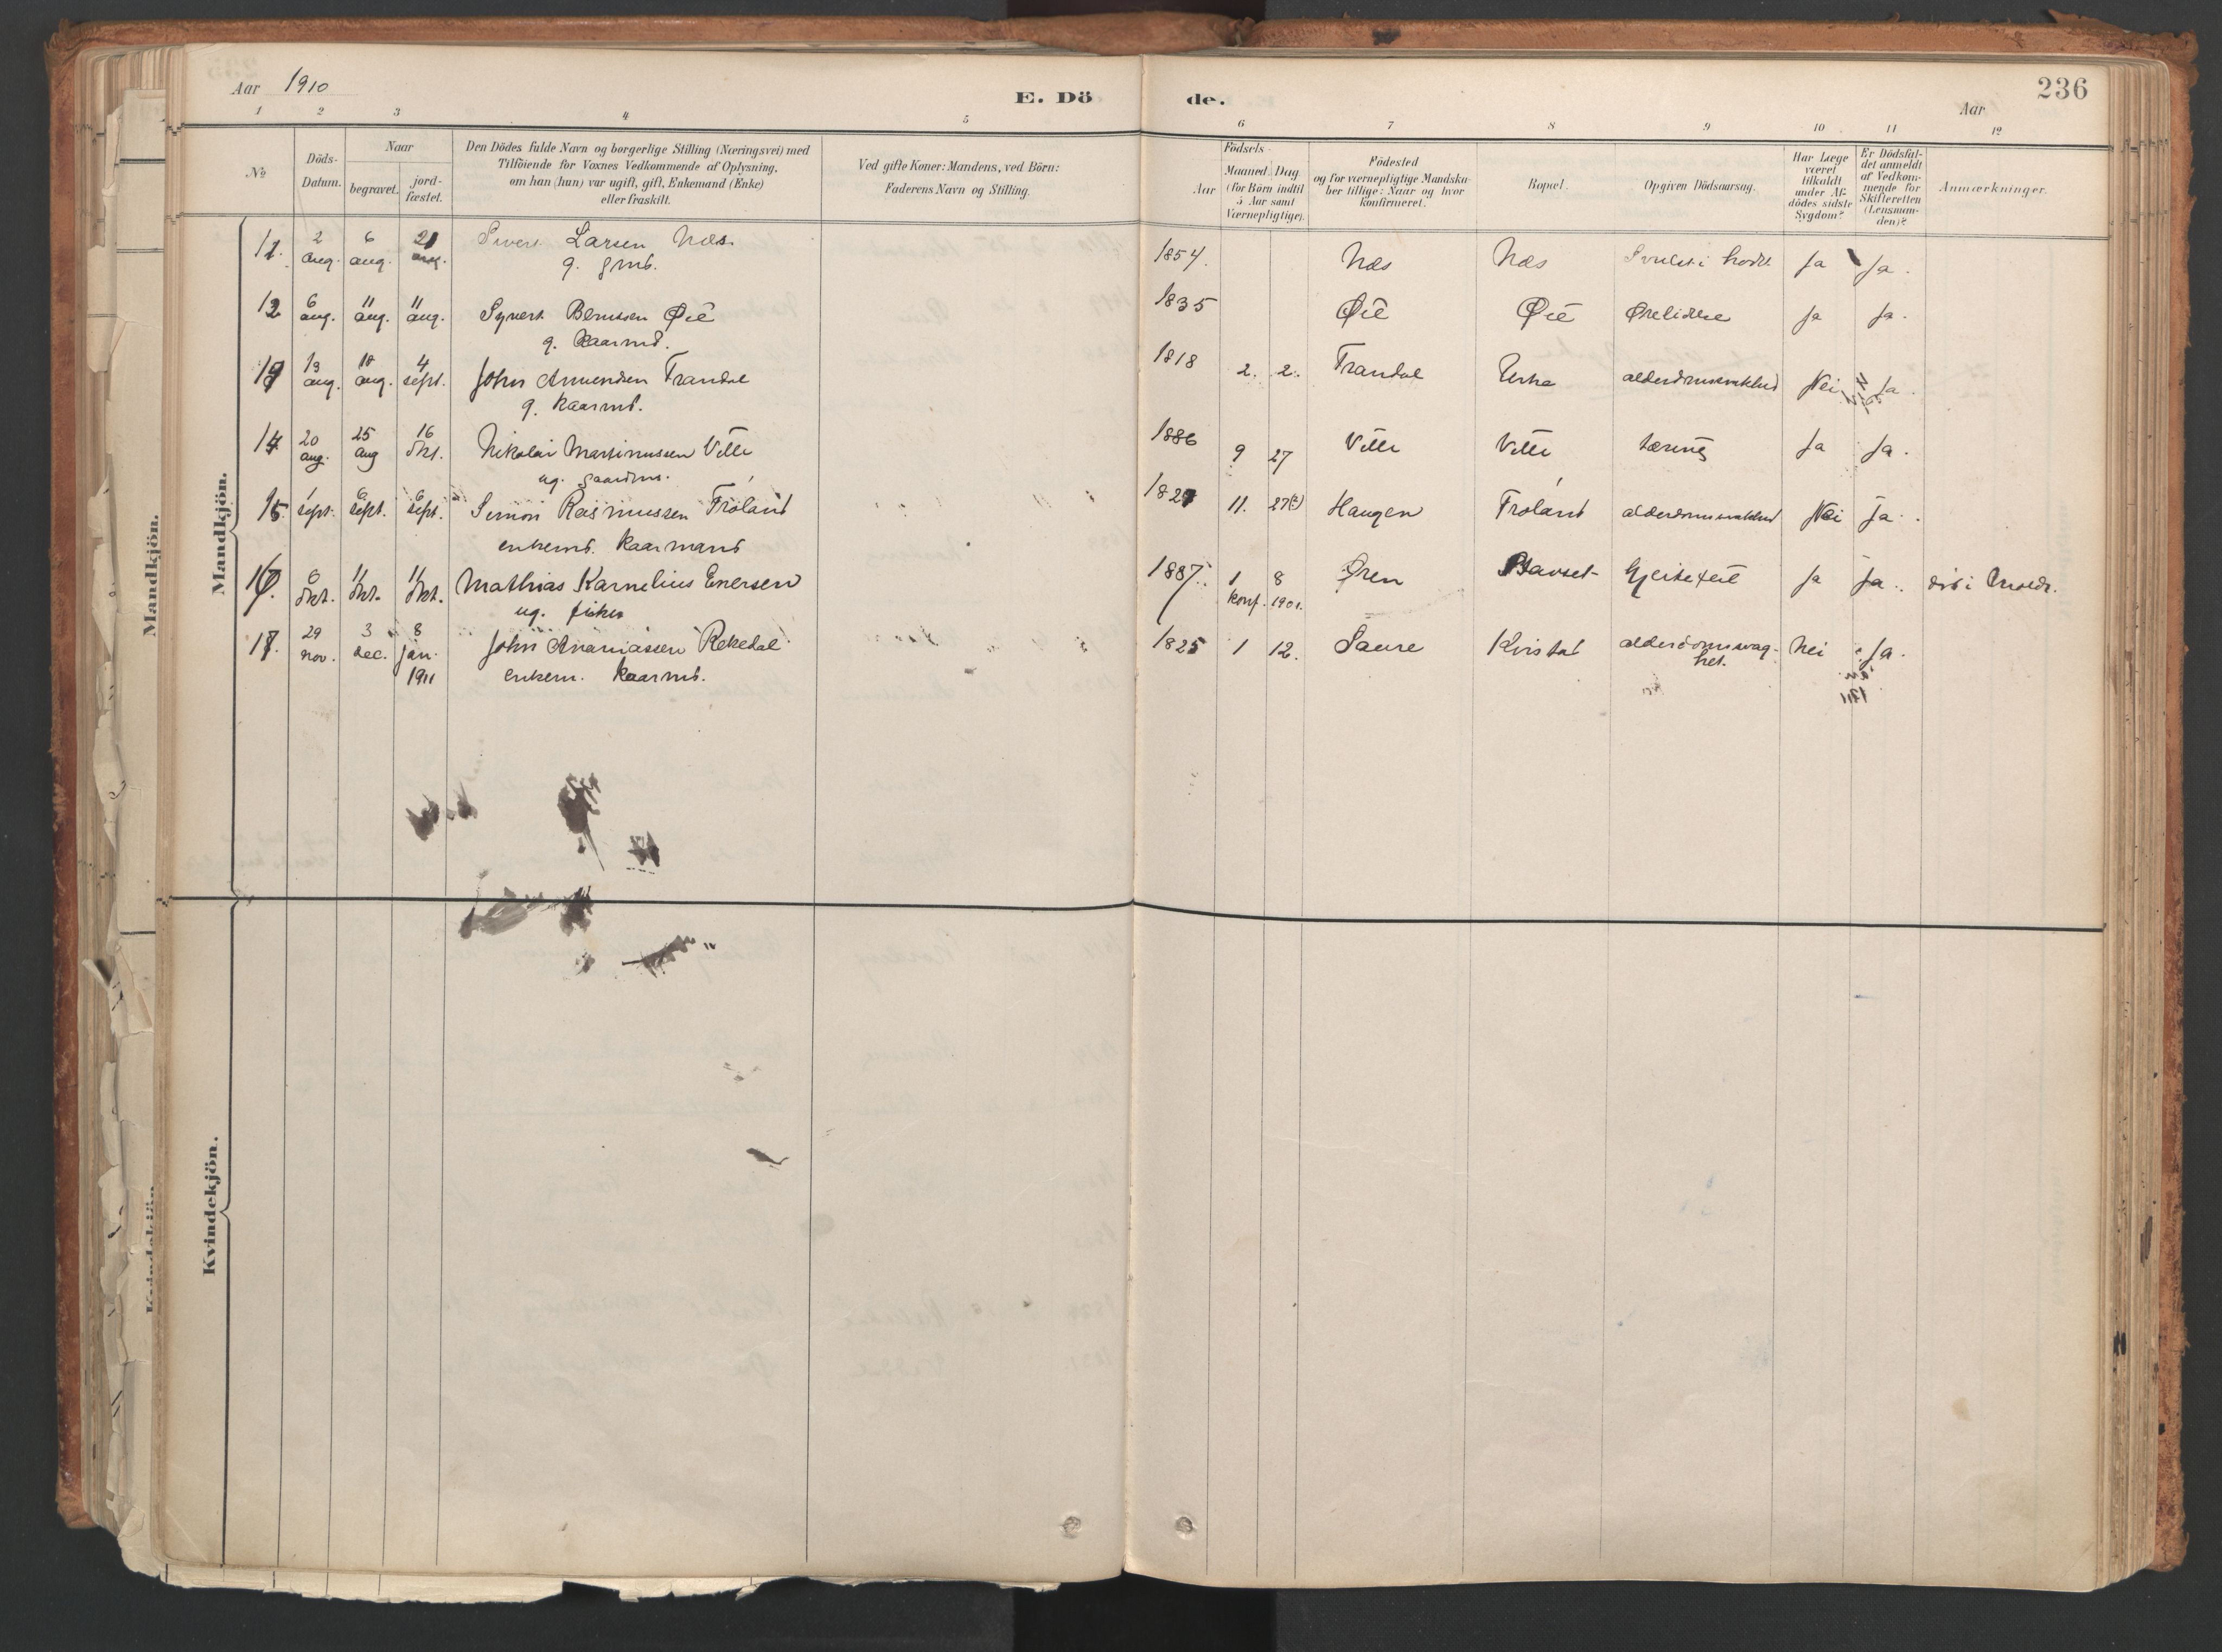 Aar 1910
E. Dö de.
236
Aar
1 2 3 4 5 6 7 8 9 10 11 12
№
Döds-
Datum.
Naar
begravet.
jord-
fæstet.
Den Dödes fulde Navn og borgerlige Stilling (Næringsvei) med
Tilföiende for Voxnes Vedkommende af Oplysning,
om han (hun) var ugift, gift, Enkemand (Enke)
eller fraskilt.
Ved gifte Koner: Mandens, ved Börn:
Faderens Navn og Stilling.
Födsels-
Aar
Maaned Dag
(for Börn indtil
5 Aar samt
Værnepligtige).
Födested
og for værnepligtige Mandska-
ber tillige: Naar og hvor
konfirmeret.
Bopæl.
Opgiven Dödsaarsag.
Har Læge
været
tilkaldt
under Af-
dödes sidste
Sygdom?
Er Dödsfal-
det anmeldt
af Vedkom-
mende for
Skifteretten
(Lensman-
den)?
Anmærkninger.
Mandkjön.
Mandkjön.
11. 2 aug. 6 aug. 21 aug. Sivert Larsen Næs. 1854. Næs Næs Svulst i Ja Ja.
g. gmd.
12 6 aug. 11 aug. 11 aug. Syvert Berntsen Øie 1835 Øie Øie Ja Ja.
g. Kaarmd.
13 13 aug. 18 aug. 4 sept. John Amundsen Trandal 1818 2. 2. Trandal Urke Nei Ja.
g. Kaarmd.
14 20 aug. 25 aug 16 Okt. Nikolai Martinussen Velle 1886 9 27 Velle Velle tæring Ja Ja.
ug. gaardm.
15 1 sept. 6 sept. 6 sept. Simon Rasmussen Frøland 11. 27(?) Haugen Frøland Nei Ja.
enkemd. Kaarmand
16. 6 Okt. 11 Okt. 11 Okt. Mathias Karnelius Enersen 1887. 1 8 Øren Ja Ja. død i
ug. fisker konf. 1901.
17. 29 nov. 3 dec. 8 jan. 1911 John Ananiassen Rekedal 1825 1 12. Saure Kvistad alderdomssvag-
het. Nei Ja.
enkem. Kaarmd.
Kvindekjön.
Kvindekjön